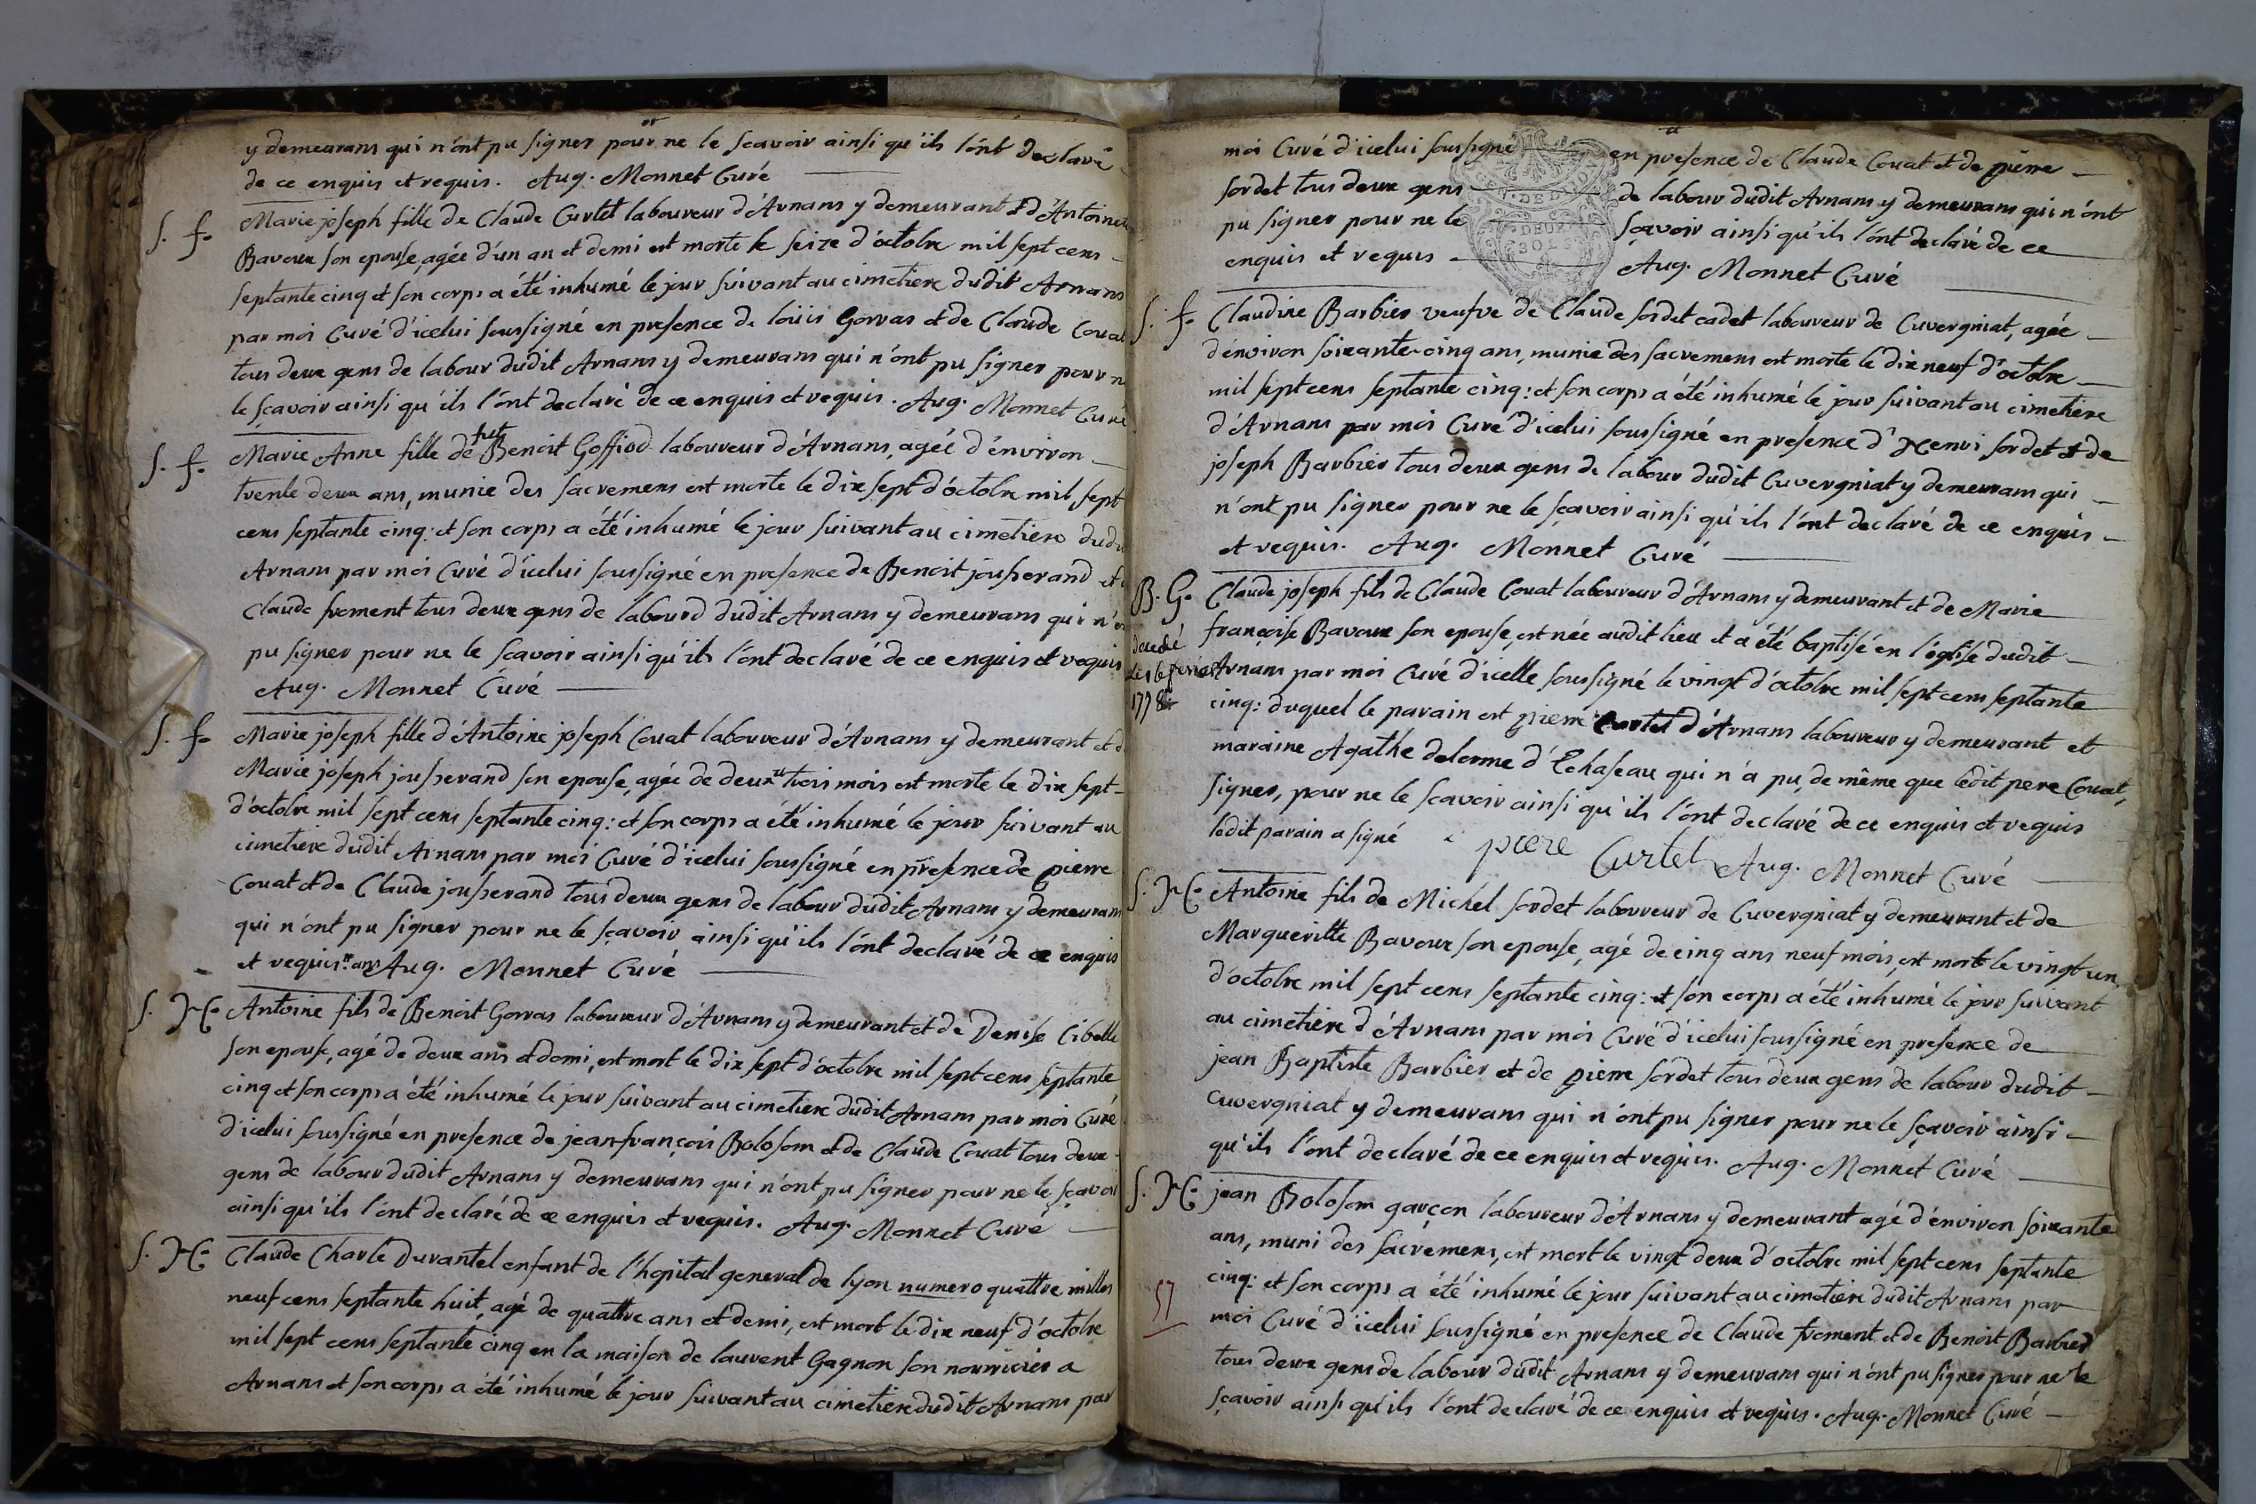 y demeurans qui n'ont pu signer pour ne le scavoir ainsi qu'ils l'ont declaré
de ce enquis et requis. Aug. Monnet Curé
S. f. Marie joseph fille de Claude Curtet laboureur d'Arnans y demeurant & d'Antoinette
Bavoux son epouse, agée d'un an et demi est morte le seize d'octobre mil sept cens
septante cinq et son corps a été inhumé le jour suivant au cimetiere dudit Arnans
par moi Curé d'icelui soussigné en presence de loüis Gorras et de Claude Couat
tous deux gens de labour dudit Arnans y demeurans qui n'ont pu signer pour n
le sçavoir ainsi qu'ils l'ont declaré de ce enquis et requis. Aug. Monnet Curé
S. f. Marie Anne fille de fut Benoit Goffiod laboureur d'Arnans, agée d'environ
trente deux ans, munie des sacremens est morte le dix sept d'octobre mil sept
cens septante cinq: et son corps a été inhumé le jour suivant au cimetiere dudi
Arnans par moi Curé d'icelui soussigné en presence de Benoit jousserand et
Claude froment tous deux gens de labourd dudit Arnans y demeurans qui n'o
pu signer pour ne le sçavoir ainsi qu'ils l'ont declaré de ce enquis et requis
Aug. Monnet Curé
S. f. Marie joseph fille d'Antoine joseph Couat laboureur d'Arnans y demeurant et d
Marie joseph jousserand son epouse, agée de deux ans trois mois est morte le dix sept
d'octobre mil sept cens septante cinq: et son corps a été inhumé le jour suivant au
cimetiere dudit Arnans par moi Curé d'icelui soussigné en presence de pierre
Couat et de Claude jousserand tous deux gens de labour dudit Arnans y demeurans
qui n'ont pu signer pour ne le sçavoir ainsi qu'ils l'ont declaré de ce enquis
et requis. ans Aug. Monnet Curé
S. H. Antoine fils de Benoit Gorras laboureur d'Arnans y demeurant et de Denise Cibelle
son epouse, agé de deux ans et demi, est mort le dix sept d'octobre mil sept cens septante
cinq et son corps a été inhumé le jour suivant au cimetiere dudit Arnans par moi Curé
d'icelui soussigné en presence de jean-françois Bolosom et de Claude Couat tous deux
gens de labour dudit Arnans y demeurans qui n'ont pu signer pour ne le sçavoir
ainsi qu'ils l'ont declaré de ce enquis et requis. Aug. Monnet Curé
S. H. Claude Charle Durantel enfant de l'hopital general de lyon numero quattre milles
neuf cens septante huit, agé de quattre ans et demi, est mort le dix neuf d'octobre
mil sept cens septante cinq en la maison de laurent Gagnon son nourricier a
Arnans et son corps a été inhumé le jour suivant au cimetiere dudit Arnans par
moi Curé d'icelui soussigné en presence de Claude Couat et de pierre
sordet tous deux gens de labour dudit Arnans y demeurans qui n'ont
pu signer pour ne le sçavoir ainsi qu'ils l'ont declaré de ce
enquis et requis Aug. Monnet Curé
GEN. DE DIJON
DEUX
SOLS
S. f. Claudine Barbier veufve de Claude sordet cadet laboureur de Cuvergniat, agée
d'environ soixante-cinq ans, munie des sacremens est morte le dix neuf d'octobre
mil sept cens septante cinq: et son corps a été inhumé le jour suivant au cimetiere
d'Arnans par moi Curé d'icelui soussigné en presence d'Henri sordet et de
joseph Barbier tous deux gens de labour dudit Cuvergniat y demeurans qui
n'ont pu signer pour ne le sçavoir ainsi qu'ils l'ont declaré de ce enquis
et requis. Aug. Monnet Curé
B. G. Claude joseph fils de Claude Couat laboureur d'Arnans y demeurant et de Marie
françoise Bavoux son epouse, est née audit lieu et a été baptisé en l'église dudit
Arnans par moi Curé d'icelle soussigné le vingt d'octobre mil sept cens septante
cinq: duquel le parain est pierre Curtet d'Arnans laboureur y demeurant et
maraine Agathe delorme d'Echaseau qui n'a pu, de même que ledit pere Couat,
signer, pour ne le sçavoir ainsi qu'ils l'ont declaré de ce enquis et requis
ledit parain a signé
piere Curtet Aug. Monnet Curé
decedé
S. H. Antoine fils de Michel sordet laboureur de Cuvergniat y demeurant et de
Margueritte Bavoux son epouse, agé de cinq ans neuf mois, est mort le vingt un
d'octobre mil sept cens septante cinq: et son corps a été inhumé le jour suivant
au cimetiere d'Arnans par moi Curé d'icelui soussigné en presence de
jean Baptiste Barbier et de pierre sordet tous deux gens de labour dudit
cuvergniat y demeurans qui n'ont pu signer pour ne le sçavoir ainsi
qu'ils l'ont declaré de ce enquis et requis. Aug. Monnet Curé
S. H. jean Bolosom garçon laboureur d'Arnans y demeurant agé d'environ soixante
ans, muni des sacremens, est mort le vingt deux d'octobre mil sept cens septante
cinq: et son corps a été inhumé le jour suivant au cimetiere dudit Arnans par
57
moi Curé d'icelui soussigné en presence de Claude froment et de Benoit Barbier
tous deux gens de labour dudit Arnans y demeurans qui n'ont pu signer pour ne le
sçavoir ainsi qu'ils l'ont declaré de ce enquis et requis. Aug. Monnet Curé